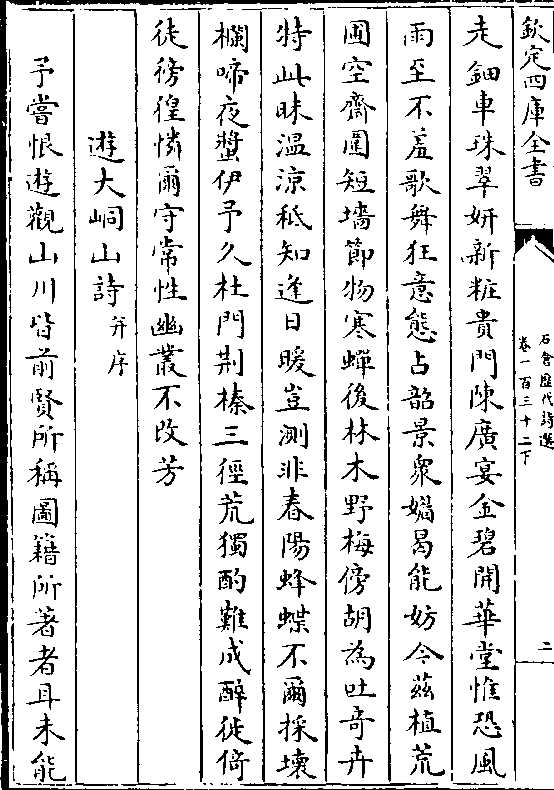 欽定四庫全書
石倉歴代詩選
卷一百三十二下
二
走鈿車珠翠妍新粧貴門陳廣宴金碧開華堂惟恐風
雨至不羞歌舞狂意態占韶景衆媸曷能妨今茲植荒
圃空齋圍短墻節物寒蟬後林木野梅傍胡為吐竒卉
特此昧溫涼秪知逢日暖豈測非春陽蜂蝶不爾採壊
欄啼夜螿伊予久杜門荆榛三徑荒獨酌難成醉徙倚
徒徬徨憐爾守常性幽叢不改芳
遊大峒山詩并序
予嘗恨遊觀山川皆前賢所稱圖籍所著者耳未能